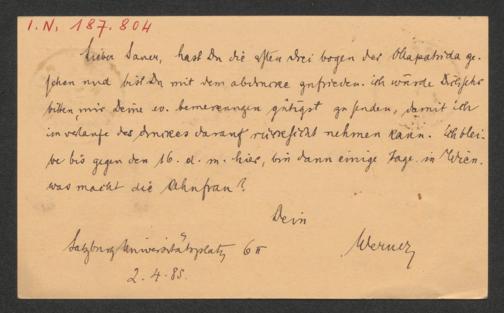 I.N. 187.804
Lieber Sauer, hast Du die ersten drei bogen der Ollapatrida ge-
sehen und bist Du mit dem abdrucke zufrieden. ich würde Dich sehr
bitten, mir Deine ev. bemerkungen gütigst zu senden, damit ich
im verlaufe des druckes darauf rücksicht nehmen kann. Ich blei-
be bis gegen den 16. d. m. hier, bin dann einige Tage in Wien.
was macht die Ahnfrau?
Dein
Salzburg Universitätsplatz 6 II
Werner
2.4.85.